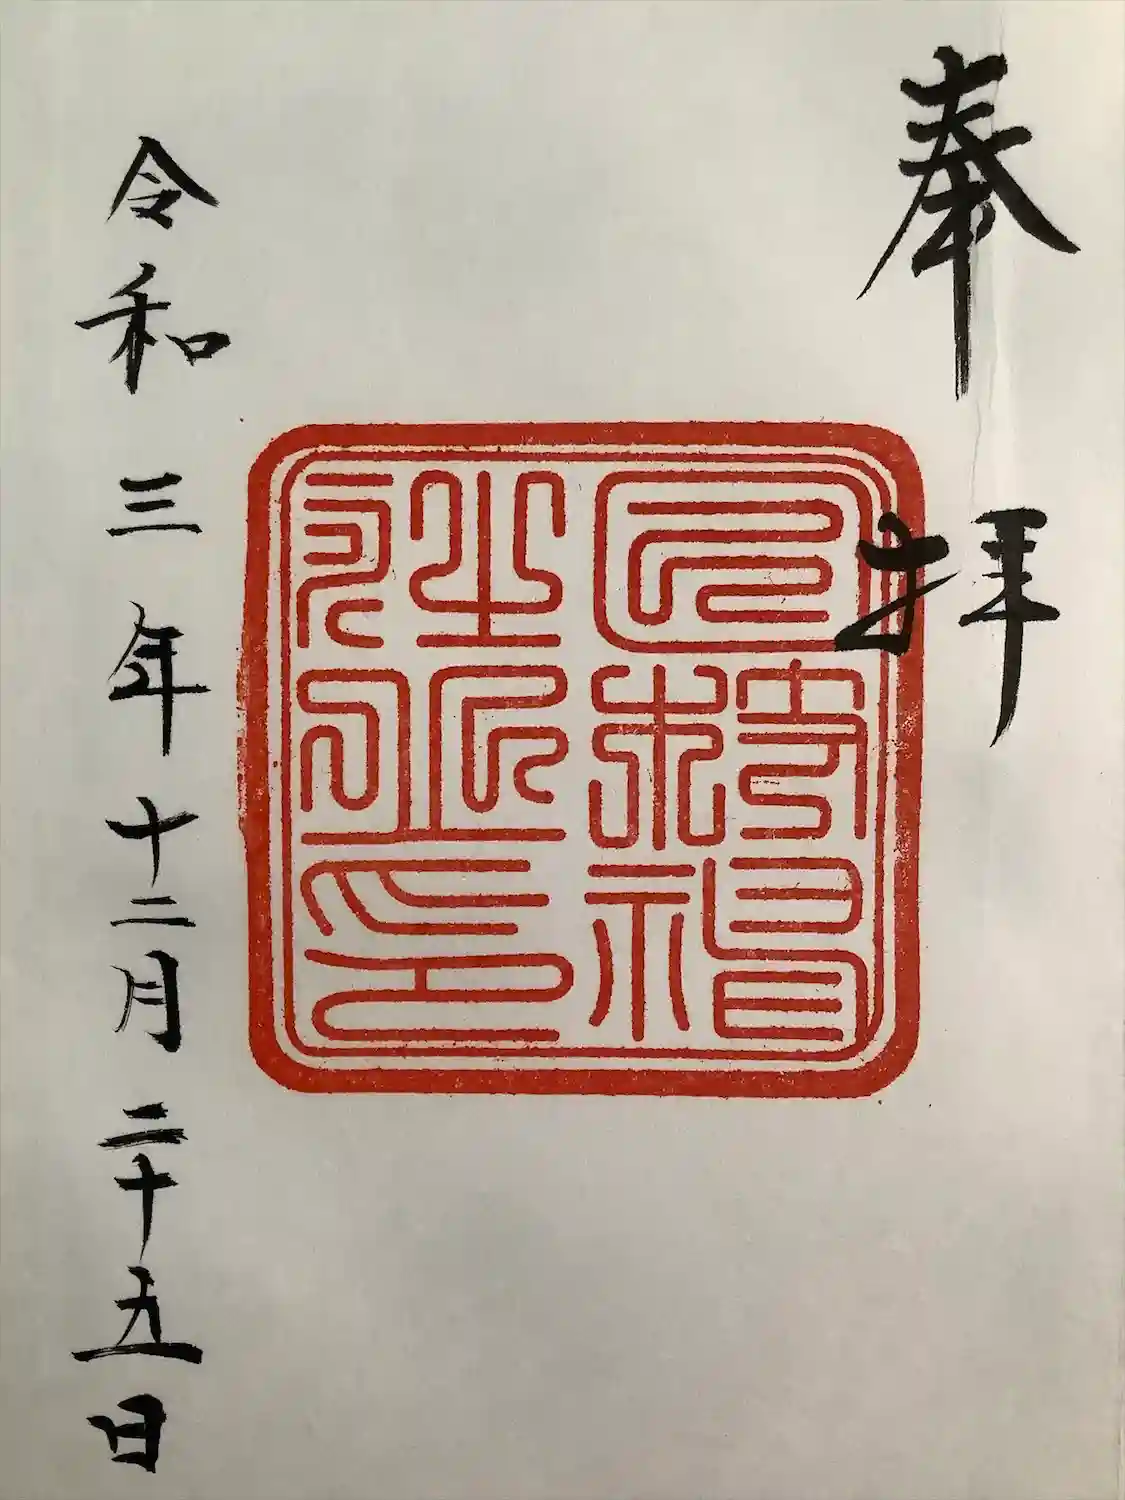 奉拝
令和三年十二月二十五日